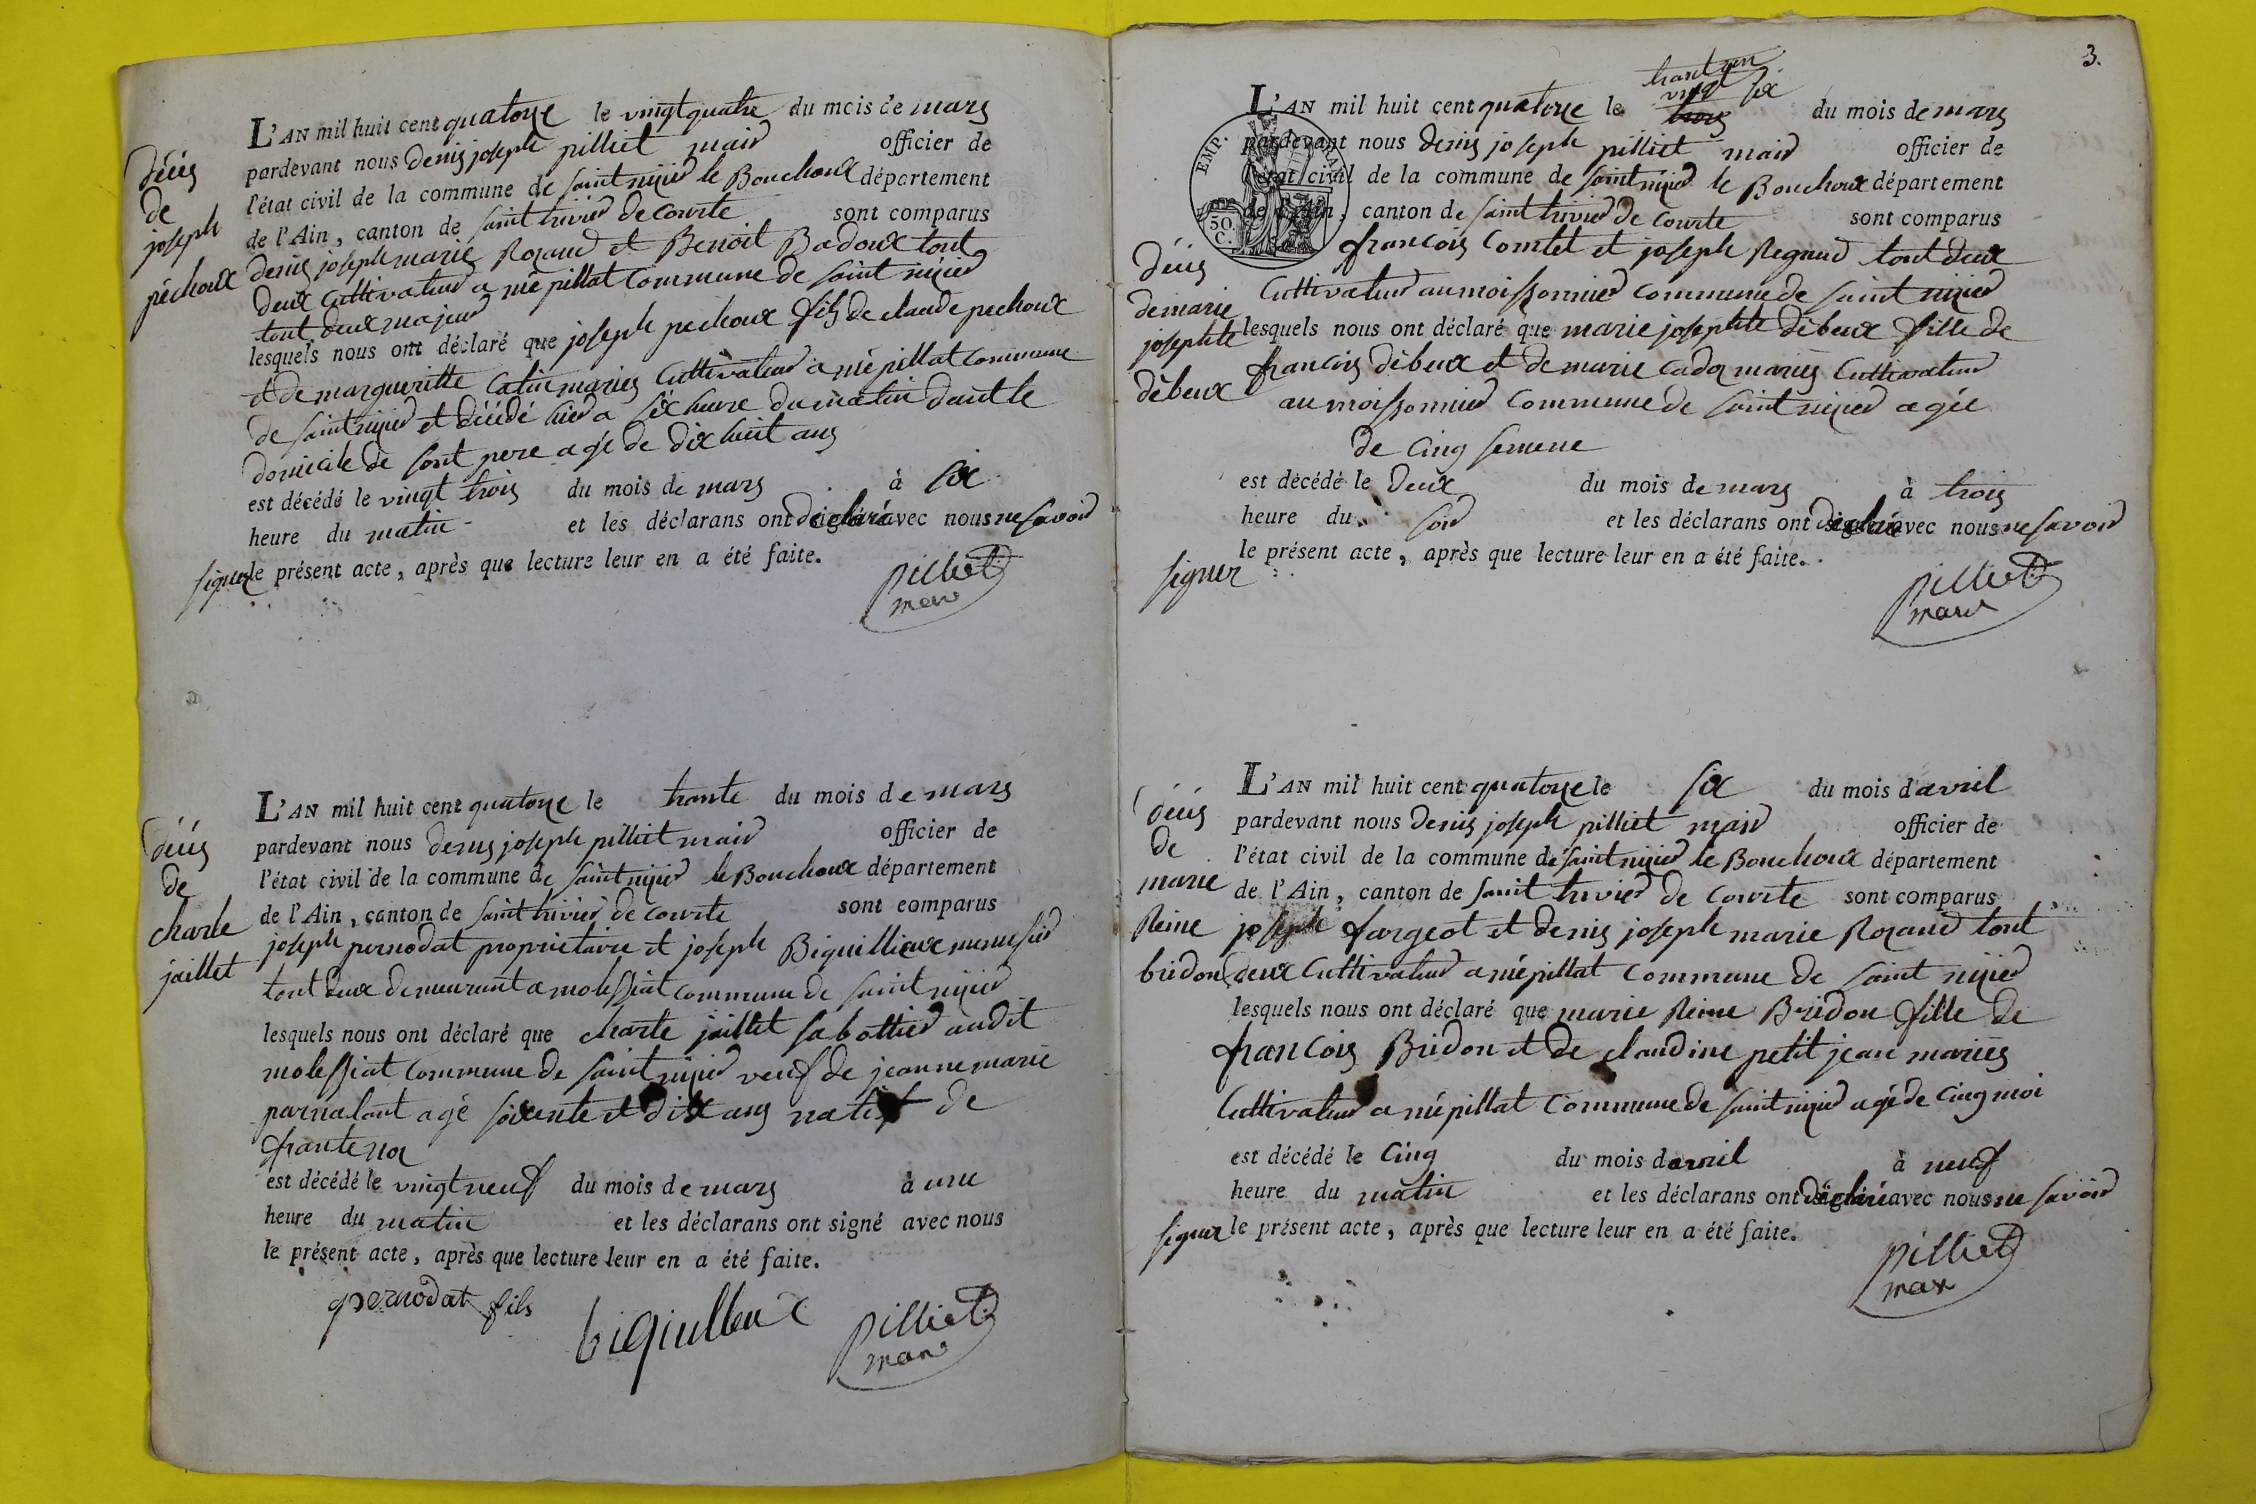 L'AN mil huit cent quatorze le vingt quatre du mois de mars
pardevant nous denis joseph pilliet maire officier de
l'état civil de la commune de saint nizier le Bouchoux département
de l'Ain, canton de saint trivier de courte sont comparus
denis joseph marie Rozand et Benoit Badoux tout
deux Cultivateur a mépillat commune de saint nizier
tout deux majeur
lesquels nous ont déclaré que joseph pechoux fils de claude pechoux
et de margueritte Catin mariés Cultivateur a mépillat commune
de saint nizier et décédé hier a six heure du matin dant le
domicile de sont pere agé de dix huit ans
est décédé le vingt trois du mois de mars à six
heure du matin et les déclarans ont déclaré avec nous ne savoir
signer le présent acte, après que lecture leur en a été faite.
pilliet
maire
décés
de
joseph
péchoux
L'AN mil huit cent quatorze le trante du mois de mars
pardevant nous denis joseph pilliet maire officier de
l'état civil de la commune de saint nizier le Bouchoux département
de l'Ain, canton de saint trivier de courte sont comparus
joseph pernodat proprietaire et joseph Biguillieux menusier
tout deux demeurant a molessiat commune de saint nizier
lesquels nous ont déclaré que charle jaillet sabottier audit
molessiat commune de saint nizier veuf de jeanne marie
parnalont agé soixente et dix ans natif de
frantenox
est décédé le vingt neuf du mois de mars à une
heure du matin et les déclarans ont signé avec nous
le présent acte, après que lecture leur en a été faite.
pernodat fils
pilliet
maire
décés
de
charle
jaillet
3.
trant un
vingt six
trois
L'AN mil huit cent quatorze le du mois de mars
pardevant nous denis joseph pilliet maire officier de
l'état civil de la commune de saint nizier le Bouchoux département
de l'Ain, canton de saint trivier de courte sont comparus
francois Comtet et joseph Regnaud tout deux
Cultivateur au moissonnier commune de saint nizier
lesquels nous ont déclaré que marie josephte débeux fille de
francois débeux et de marie cadoz mariés Cultivateur
au moissonnier commune de saint nizier agée
de cinq semene
est décédé le deux du mois de mars à trois
heure du soir et les déclarans ont déclaré avec nous ne savoir
signer le présent acte, après que lecture leur en a été faite.
pilliet
maire
EMP.
50.
C.
décés
de marie
josephte
débeux
L'AN mil huit cent quatorze le six du mois d'avril
pardevant nous denis joseph pilliet maire officier de
l'état civil de la commune de saint nizier le Bouchoux département
de l'Ain, canton de saint trivier de courte sont comparus
joseph fargeot et denis joseph marie Rozand tout
deux Cultivateur a mépillat commune de saint nizier
lesquels nous ont déclaré que marie Reine Bridon fille de
francois Bridon et de claudine petit jean mariés
Cultivateur a mépillat commune de saint nizier agé de cinq moi
est décédé le cinq du mois d'avril à neuf
heure du matin et les déclarans ont déclaré avec nous ne savoir
signer le présent acte, après que lecture leur en a été faite.
pilliet
maire
décés
de
marie
Reine
bridon